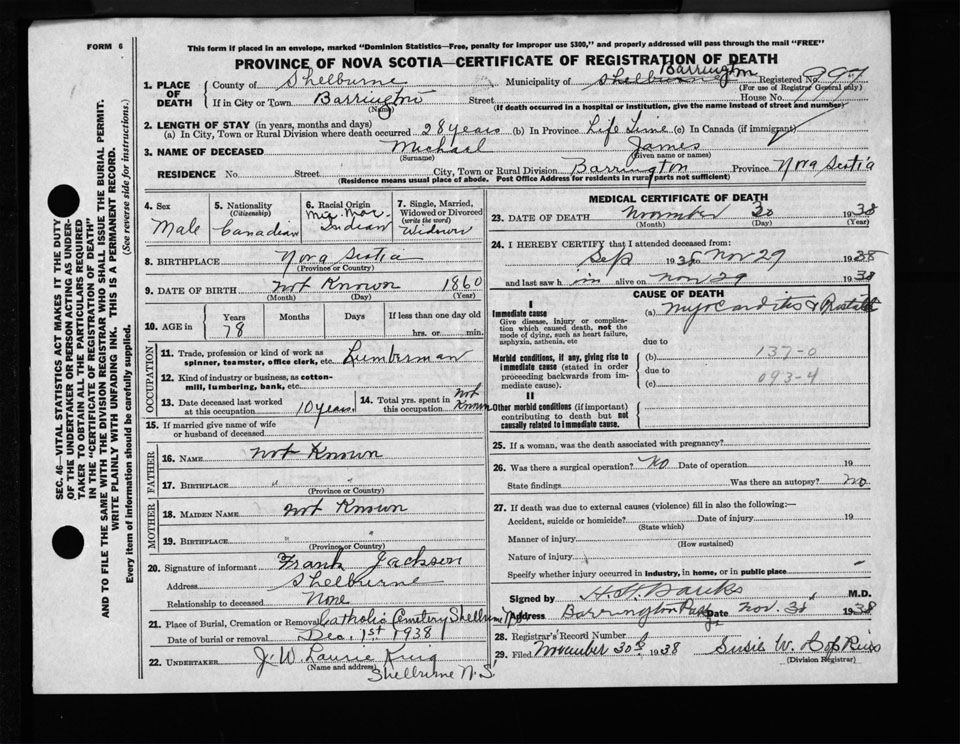 FORM 6
This form if placed in an envelope, marked "Dominion Statistics—Free, penalty for improper use $300," and properly addressed will pass through the mail "FREE"
PROVINCE OF NOVA SCOTIA—CERTIFICATE OF REGISTRATION OF DEATH
SEC. 46—VITAL STATISTICS ACT MAKES IT THE DUTY
OF THE UNDERTAKER OR PERSON ACTING AS UNDER-
TAKER TO OBTAIN ALL THE PARTICULARS REQUIRED
IN THE "CERTIFICATE OF REGISTRATION OF DEATH"
AND TO FILE THE SAME WITH THE DIVISION REGISTRAR WHO SHALL ISSUE THE BURIAL PERMIT.
WRITE PLAINLY WITH UNFADING INK. THIS IS A PERMANENT RECORD.
Every item of information should be carefully supplied. (See reverse side for instructions.)
1. PLACE OF DEATH
County of Shelburne Municipality of Shelburne Barrington Registered No. 997
(For use of Registrar General only)
If in City or Town Barrington Street House No.
(Name) (If death occurred in a hospital or institution, give the name instead of street and number)
2. LENGTH OF STAY (in years, months and days)
(a) In City, Town or Rural Division where death occurred 28 years (b) In Province Life Time (c) In Canada (if immigrant)
3. NAME OF DECEASED Michael James
(Surname) (Given name or names)
RESIDENCE No. Street City, Town or Rural Division Barrington Province Nova Scotia
(Residence means usual place of abode. Post Office Address for residents in rural parts not sufficient)
4. Sex Male
5. Nationality (Citizenship) Canadian
6. Racial Origin Mic Mac Indian
7. Single, Married, Widowed or Divorced (write the word) Widower
8. BIRTHPLACE Nova Scotia
(Province or Country)
9. DATE OF BIRTH Not Known 1860
(Month) (Day) (Year)
10. AGE in Years Months Days If less than one day old
78 hrs. or min.
OCCUPATION
11. Trade, profession or kind of work as spinner, teamster, office clerk, etc. Lumberman
12. Kind of industry or business, as cotton-mill, lumbering, bank, etc.
13. Date deceased last worked at this occupation 10 years
14. Total yrs. spent in this occupation Not Known
15. If married give name of wife or husband of deceased
FATHER
16. NAME Not Known
17. BIRTHPLACE " "
(Province or Country)
MOTHER
18. MAIDEN NAME Not Known
19. BIRTHPLACE " "
(Province or Country)
20. Signature of informant Frank Jackson
Address Shelburne
Relationship to deceased None
21. Place of Burial, Cremation or Removal Catholic Cemetery Shelburne NS
Date of burial or removal Dec. 1st 1938
22. UNDERTAKER J. W. Laurie King
(Name and address)
Shelburne N.S.
MEDICAL CERTIFICATE OF DEATH
23. DATE OF DEATH November 30 1938
(Month) (Day) (Year)
24. I HEREBY CERTIFY that I attended deceased from:
Sep 1938 to Nov 29 1938
and last saw him alive on Nov 29 1938
CAUSE OF DEATH
I
Immediate cause
Give disease, injury or complication which caused death, not the mode of dying, such as heart failure, asphyxia, asthenia, etc
(a) Myocarditis &
due to
Morbid conditions, if any, giving rise to immediate cause (stated in order proceeding backwards from immediate cause).
(b) 137-0
due to
(c) 093-4
II
Other morbid conditions (if important) contributing to death but not causally related to immediate cause.
25. If a woman, was the death associated with pregnancy?
26. Was there a surgical operation? No Date of operation 19
State findings Was there an autopsy? No
27. If death was due to external causes (violence) fill in also the following:—
Accident, suicide or homicide? Date of injury 19
(State which)
Manner of injury
(How sustained)
Nature of injury
Specify whether injury occurred in industry, in home, or in public place
Signed by M.D.
Address Barrington Passage Date Nov. 30 1938
28. Registrar's Record Number
29. Filed November 30th 1938 Susie W. Hopkins
(Division Registrar)